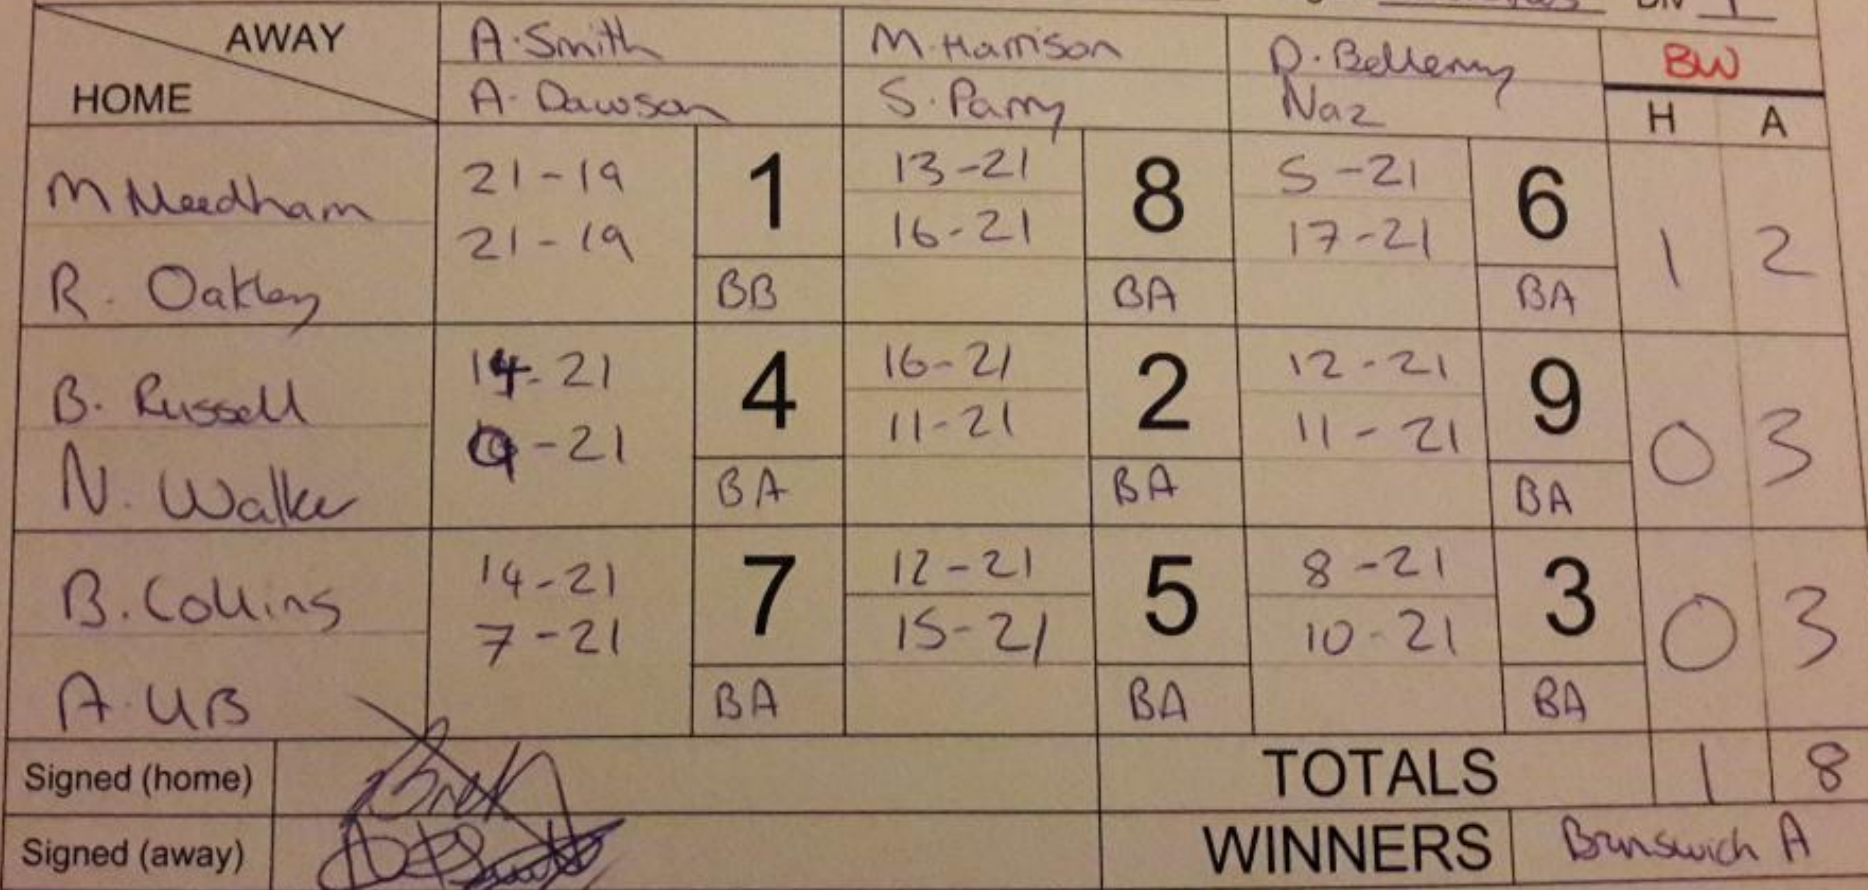 DIV 1
AWAY
HOME
A. Smith
A. Dawson
M. Harrison
S. Parry
D. Bellemy
Naz
BW
H A
M Needham
R. Oakley
21-19
21-19
1
BB
13-21
16-21
8
BA
5-21
17-21
6
BA
1 2
B. Russell
N. Walker
14-21
9-21
4
BA
16-21
11-21
2
BA
12-21
11-21
9
BA
0 3
B. Collins
A. UB
14-21
7-21
7
BA
12-21
15-21
5
BA
8-21
10-21
3
BA
0 3
Signed (home)
TOTALS 1 8
Signed (away)
WINNERS Brunswich A